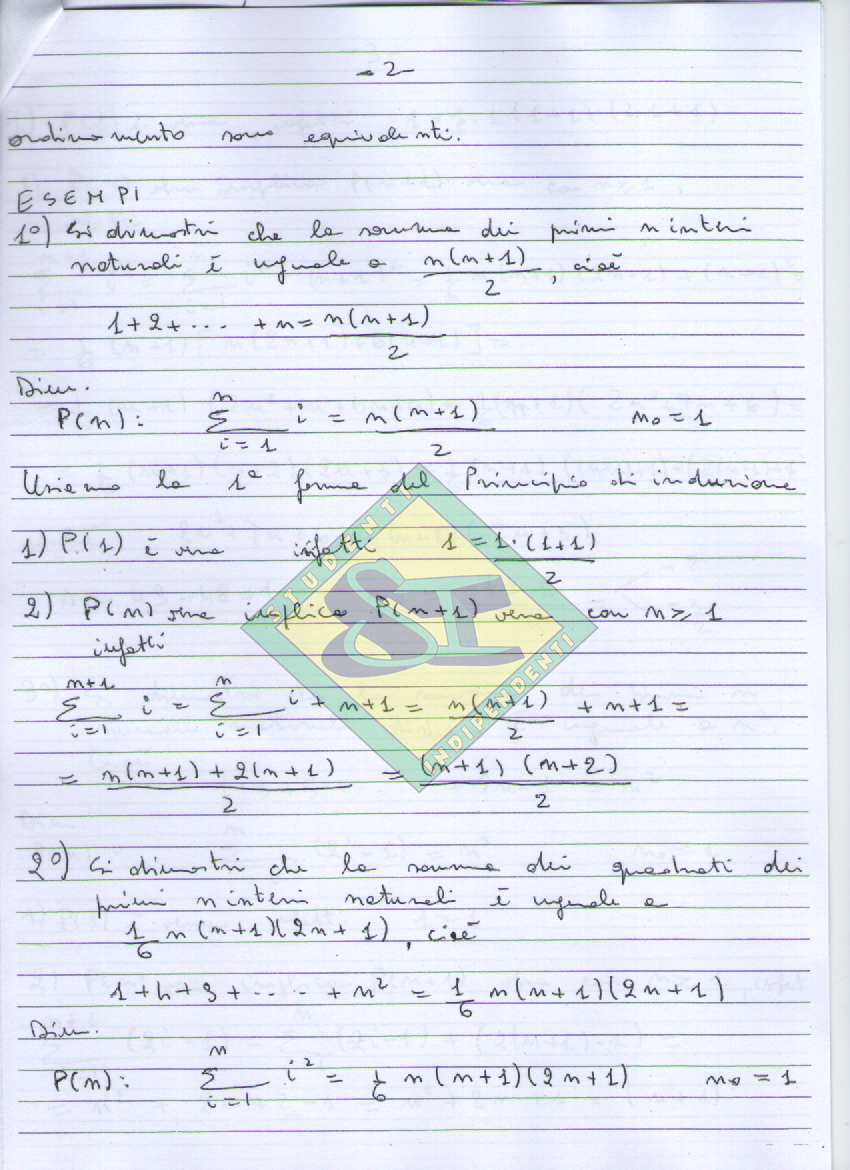 - 2 -
ordinamento sono equivalenti.
ESEMPI
1°) Si dimostri che la somma dei primi n interi
naturali è uguale a n(n+1)/2, cioè
1+2+ ··· +n = n(n+1)/2
Dim.
P(n): ∑_{i=1}^{n} i = n(n+1)/2 n₀ = 1
Usiamo la 1ª forma del Principio di induzione
1) P(1) è vera infatti 1 = 1·(1+1)/2
2) P(n) vera implica P(n+1) vera con n ≥ 1
infatti
∑_{i=1}^{n+1} i = ∑_{i=1}^{n} i + n+1 = n(n+1)/2 + n+1 =
= (n(n+1)+2(n+1))/2 = (n+1)(n+2)/2
2°) Si dimostri che la somma dei quadrati dei
primi n interi naturali è uguale a
1/6 n(n+1)(2n+1), cioè
1+4+9+ ····· +n² = 1/6 n(n+1)(2n+1)
Dim.
P(n): ∑_{i=1}^{n} i² = 1/6 n(n+1)(2n+1) n₀ = 1
STUDENTI
SI
INDIPENDENTI